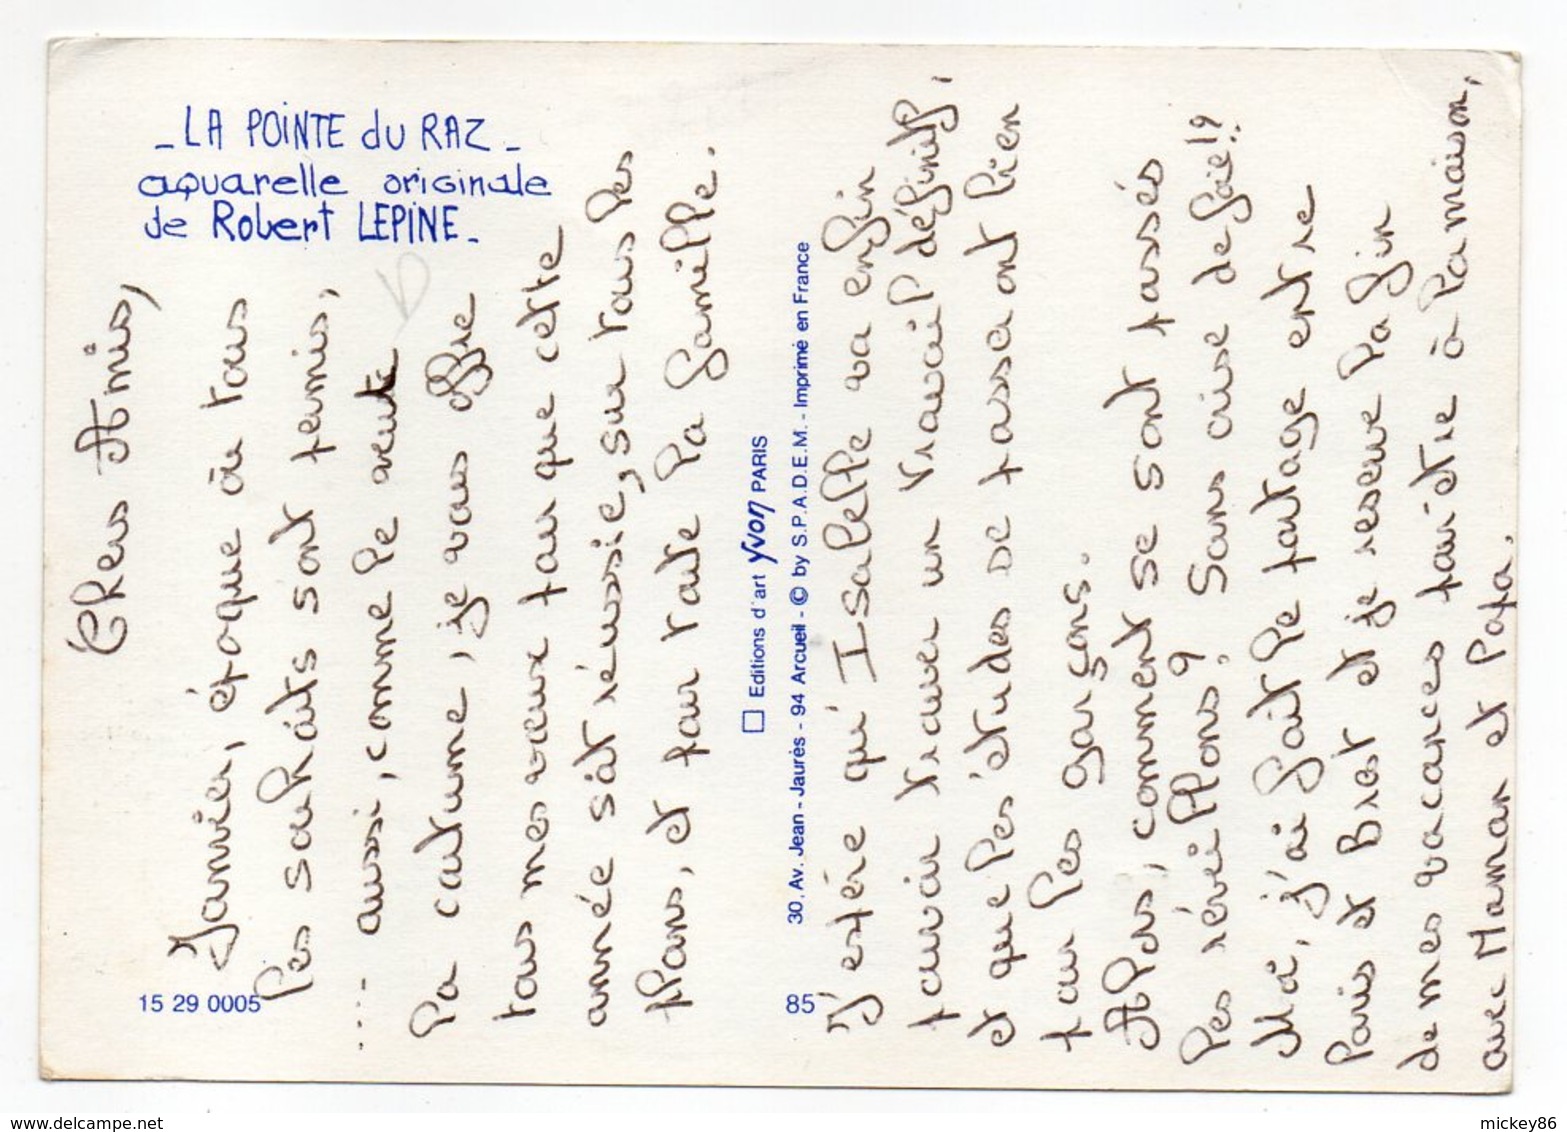 _ LA POINTE du RAZ _
aquarelle originale
de Robert LEPINE _
Chers Amis,
Janvier, époque où tous
les souhaits sont permis,
.... aussi, comme le veut
la coutume, je vous offre
tous mes voeux pour que cette
année soit réussie, sur tous les
plans, et pour toute la famille.
15 29 0005
Editions d'art yvon PARIS
30, Av. Jean - Jaurès - 94 Arcueil - © by S.P.A.D.E.M. - Imprimé en France
85
J'espère qu'Isabelle va enfin
pouvoir trouver un travail définitif,
et que les études se passeront bien
pour les garçons.
Alors, comment se sont passés
les réveillons? Sans crise de foie!?..
Moi, j'ai fait le partage entre
Paris et Brest et je reserve la fin
de mes vacances pour être à la maison,
avec Maman et Papa.
mickey86